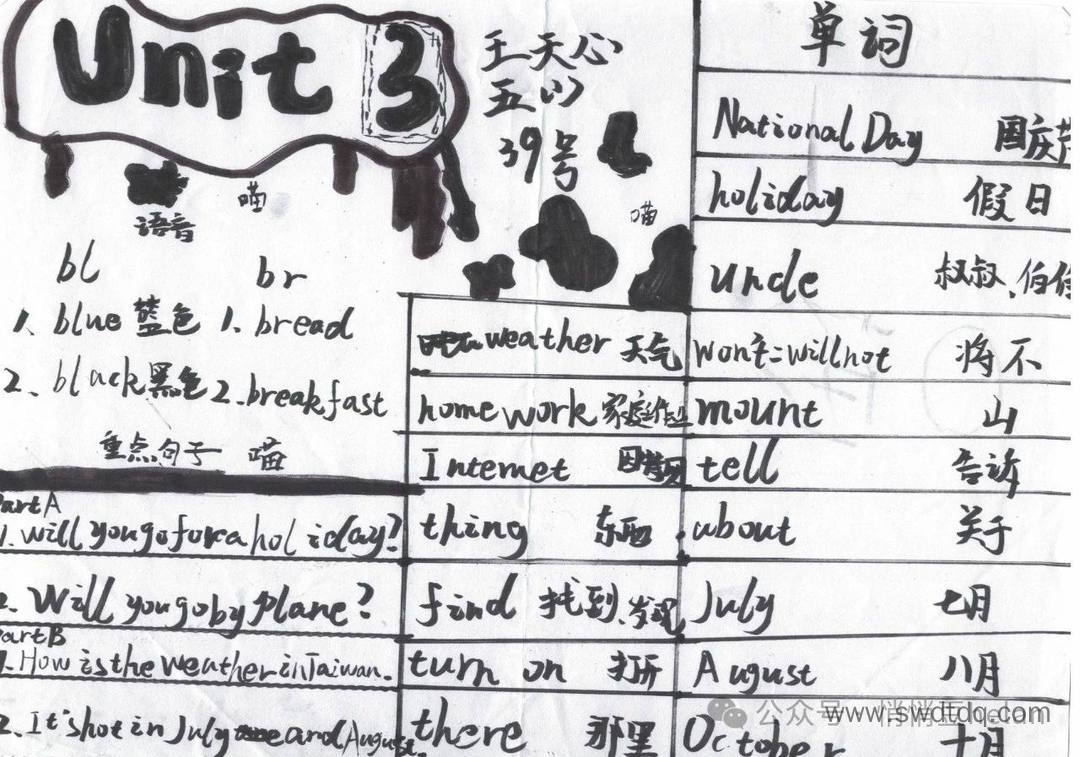 Unit 3
王天心
五(1)
39号
喵
喵
语音
bl br
1、blue 蓝色 1、bread
2、black 黑色 2、breakfast
重点句子 喵
Part A
1.will you go for a holiday?
2.Will you go by plane?
Part B
1.How is the weather in Taiwan.
2.It's hot in July and August.
单词
National Day 国庆节
holiday 假日
uncle 叔叔、伯伯
weather 天气 won't=will not 将不
homework 家庭作业 mount 山
Internet 因特网 tell 告诉
thing 东西 about 关于
find 找到、发现 July 七月
turn on 打开 August 八月
there 那里 October 十月
公众号
www.swdtdq.com